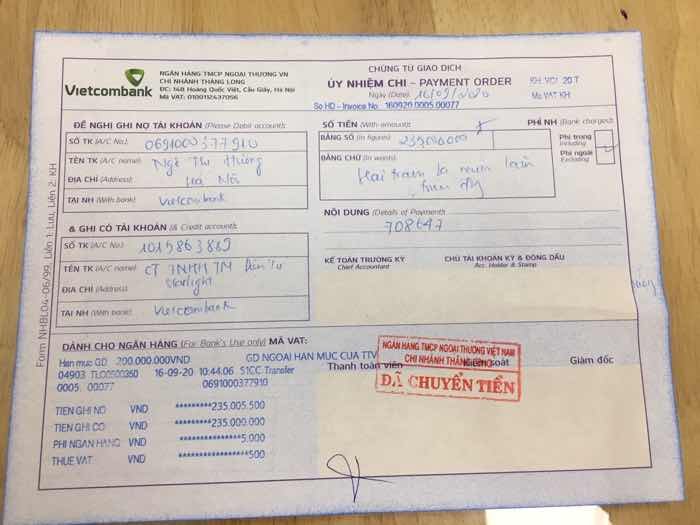 Vietcombank
NGÂN HÀNG TMCP NGOẠI THƯƠNG VN
CHI NHÁNH THĂNG LONG
ĐC: 148 Hoàng Quốc Việt, Cầu Giấy, Hà Nội
Mã VAT: 0100112437056
CHỨNG TỪ GIAO DỊCH
ỦY NHIỆM CHI – PAYMENT ORDER
Ngày (Date) 16/09/2020
So HD - Invoice No. 160920.0005.00077
KH VCI 20T
Ma VAT KH:
ĐỀ NGHỊ GHI NỢ TÀI KHOẢN (Please Debit account):
SỐ TK (A/C No.): 0691000377910
TÊN TK (A/C name): Ngô Thị Hường
ĐỊA CHỈ (Address): Hà Nội
TẠI NH (With bank): Vietcombank
SỐ TIỀN (With amount):
BẰNG SỐ (In figures) 235000000 đ
BẰNG CHỮ (In words) Hai trăm ba mươi lăm
triệu đ
PHÍ NH (Bank charges)
Phí trong
Including
Phí ngoài
Excluding
NỘI DUNG (Details of Payment):
708647
& GHI CÓ TÀI KHOẢN (& Credit account):
SỐ TK (A/C No.): 1015863889
TÊN TK (A/C name) CT TNHH TM Điện Tử
Starlight
ĐỊA CHỈ (Address):
TẠI NH (With bank): Vietcombank
KẾ TOÁN TRƯỞNG KÝ
Chief Accountant
CHỦ TÀI KHOẢN KÝ & ĐÓNG DẤU
Acc. Holder & Stamp
Form NHBL04-06/99, Liên 1: Lưu, Liên 2: KH
DÀNH CHO NGÂN HÀNG (For Bank's Use only) MÃ VAT:
Han muc GD 200.000.000VND GD NGOAI HAN MUC CUA TTV
04903 16-09-20 10:44:06 51CC Transfer
0005. 00077 0691000377910
Thanh toán viên
Kiểm soát
Giám đốc
NGÂN HÀNG TMCP NGOẠI THƯƠNG VIỆT NAM
CHI NHÁNH THĂNG LONG
ĐÃ CHUYỂN TIỀN
TIEN GHI NO VND *********235.005.500
TIEN GHI CO VND *********235.000.000
PHI NGAN HANG VND ***************5.000
THUE VAT VND *****************500